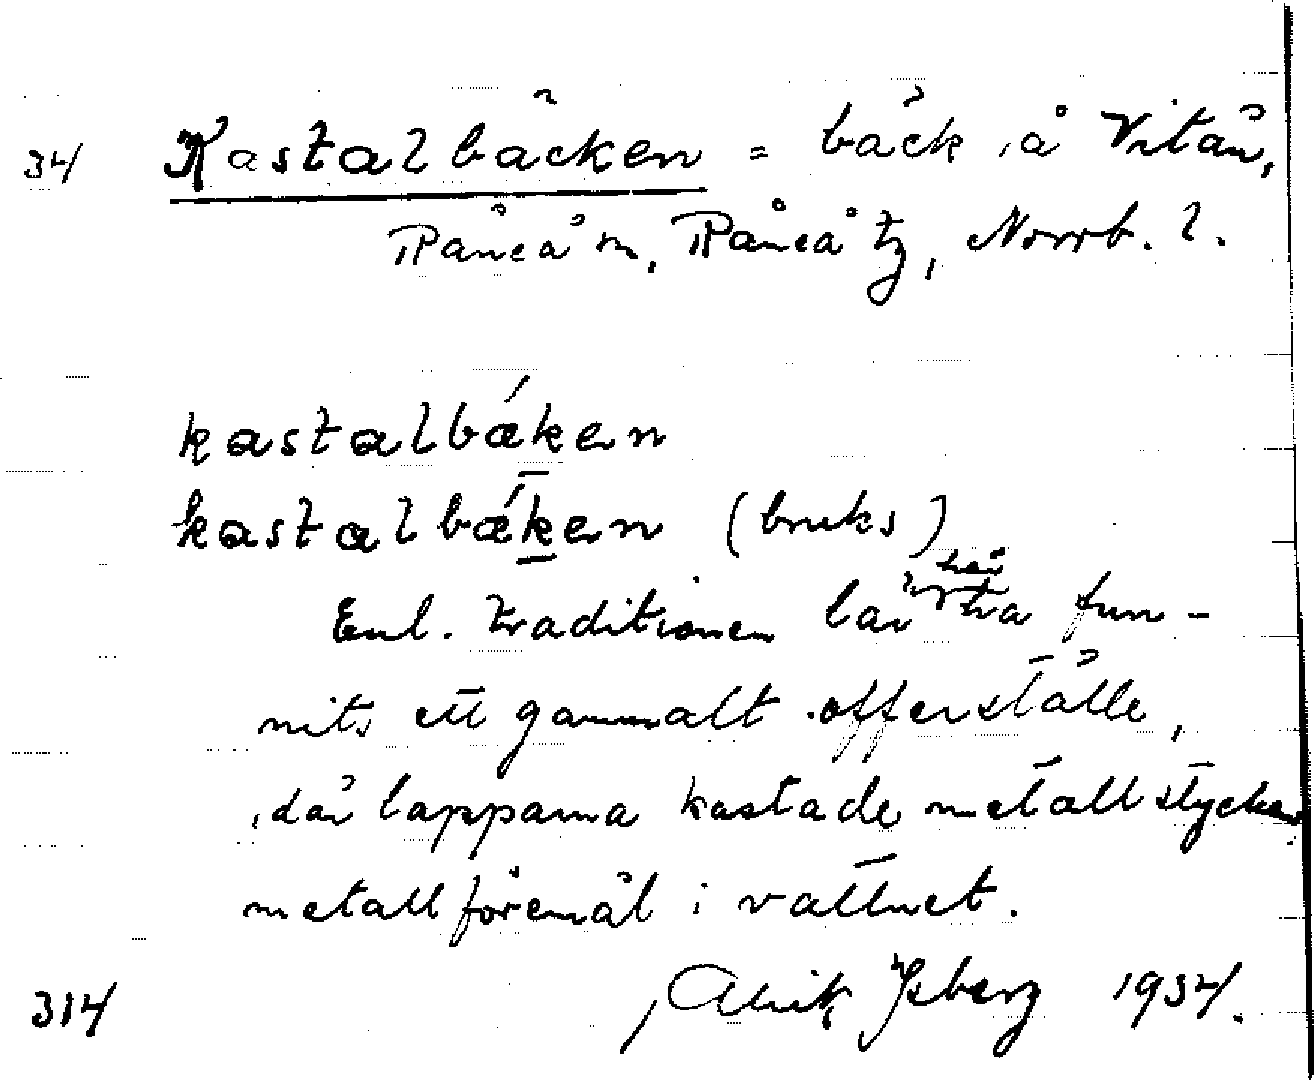 34 Kastalbäcken = bäck i å Vitån,
Råneå sn, Råneå tg, Norrb. l.
kastalbǽken
kastalbǽk̲en (bruks)
Enl. traditionen lär här ha fun-
nits ett gammalt offerställe,
där lapparna kastade metallstycken
metallföremål i vattnet.
314 Alrik Isberg 1934.